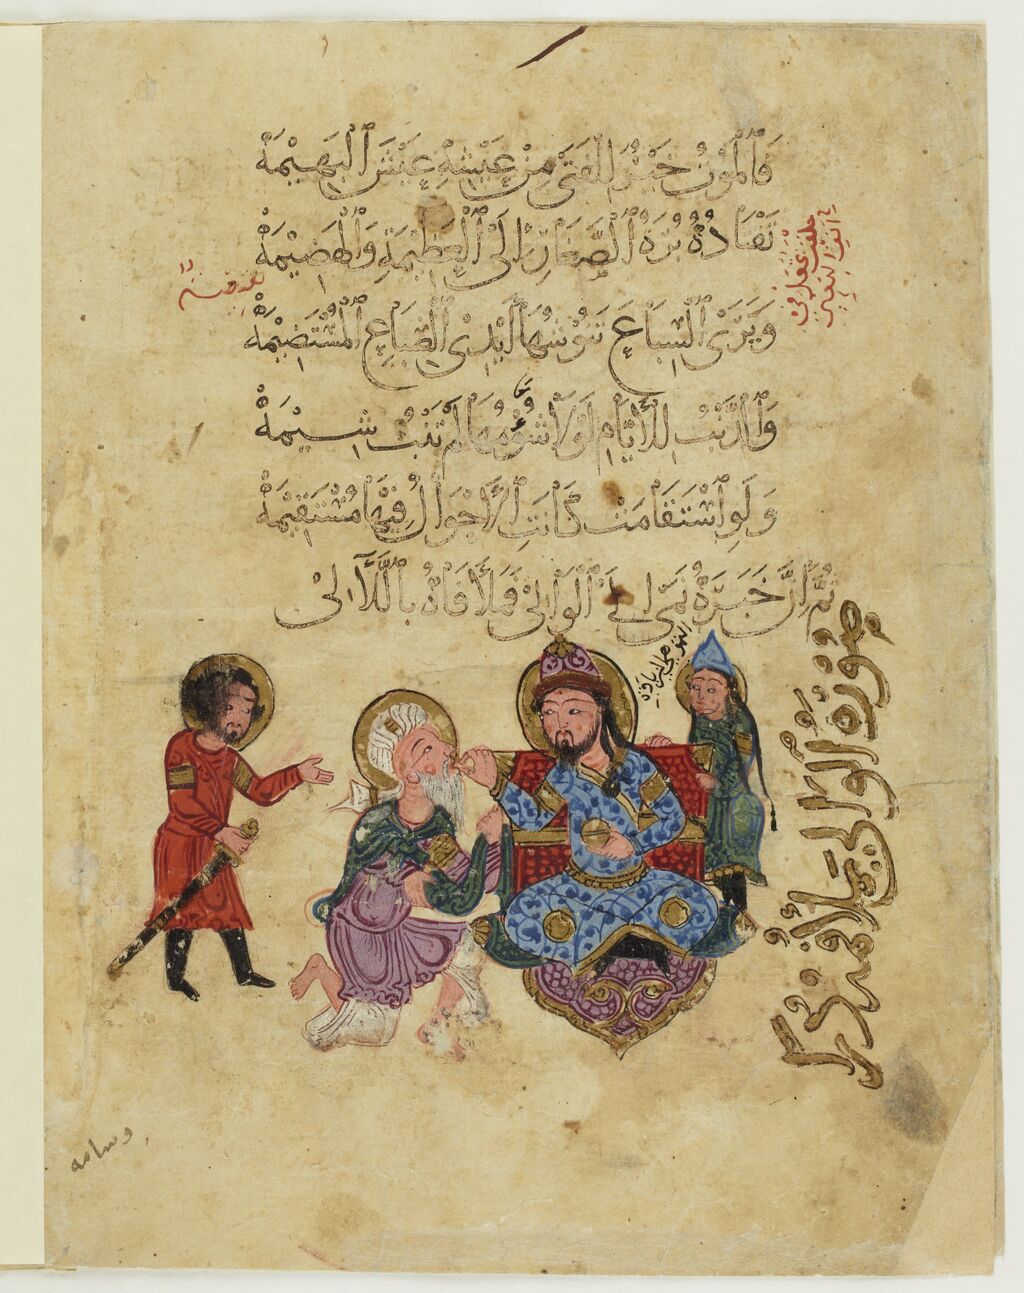 فَالْمَوْتُ خَيْرٌ لِلْفَتَى مِنْ عَيْشِهِ عَيْشَ الْبَهِيمَهْ
تَقْتَادُهُ بُرَةُ الصَّغَارِ إِلَى الْعَظِيمَةِ وَالْهَضِيمَهْ
حلقة تجعل في
انف البعير
وَيَرَى السِّبَاعَ تَنُوشُهَا أَيْدِي الضِّبَاعِ الْمُسْتَضِيمَهْ
وَالذَّنْبُ لِلْأَيَّامِ لَوْلَا شُؤْمُهَا لَمْ تَنْبُ شِيمَهْ
وَلَوِ اسْتَقَامَتْ كَانَتِ الْأَحْوَالُ فِيهَا مُسْتَقِيمَهْ
ثُمَّ إِنَّ خَبَرَهُ نَمَى إِلَى الْوَالِي فَمَلَأَ فَاهُ بِاللَّآلِي
النمو هي الزيادة
صُورَةُ الْوَالِي يملأ
وسامه